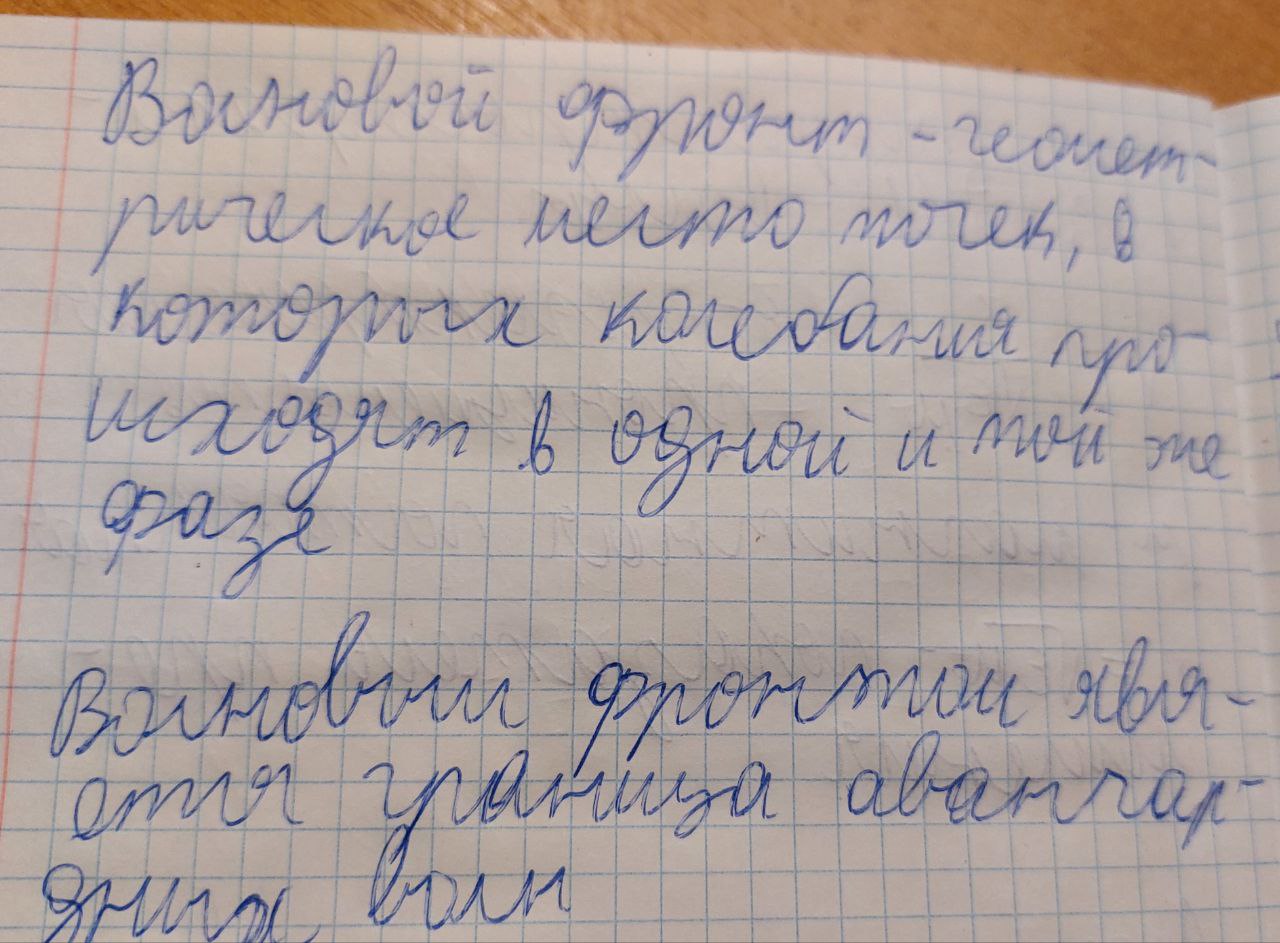 Волновой фронт - геомет-
рическое место точек, в
которых колебания про-
исходят в одной и той же
фазе
Волновым фронтом явля-
ется граница авангар-
дных волн